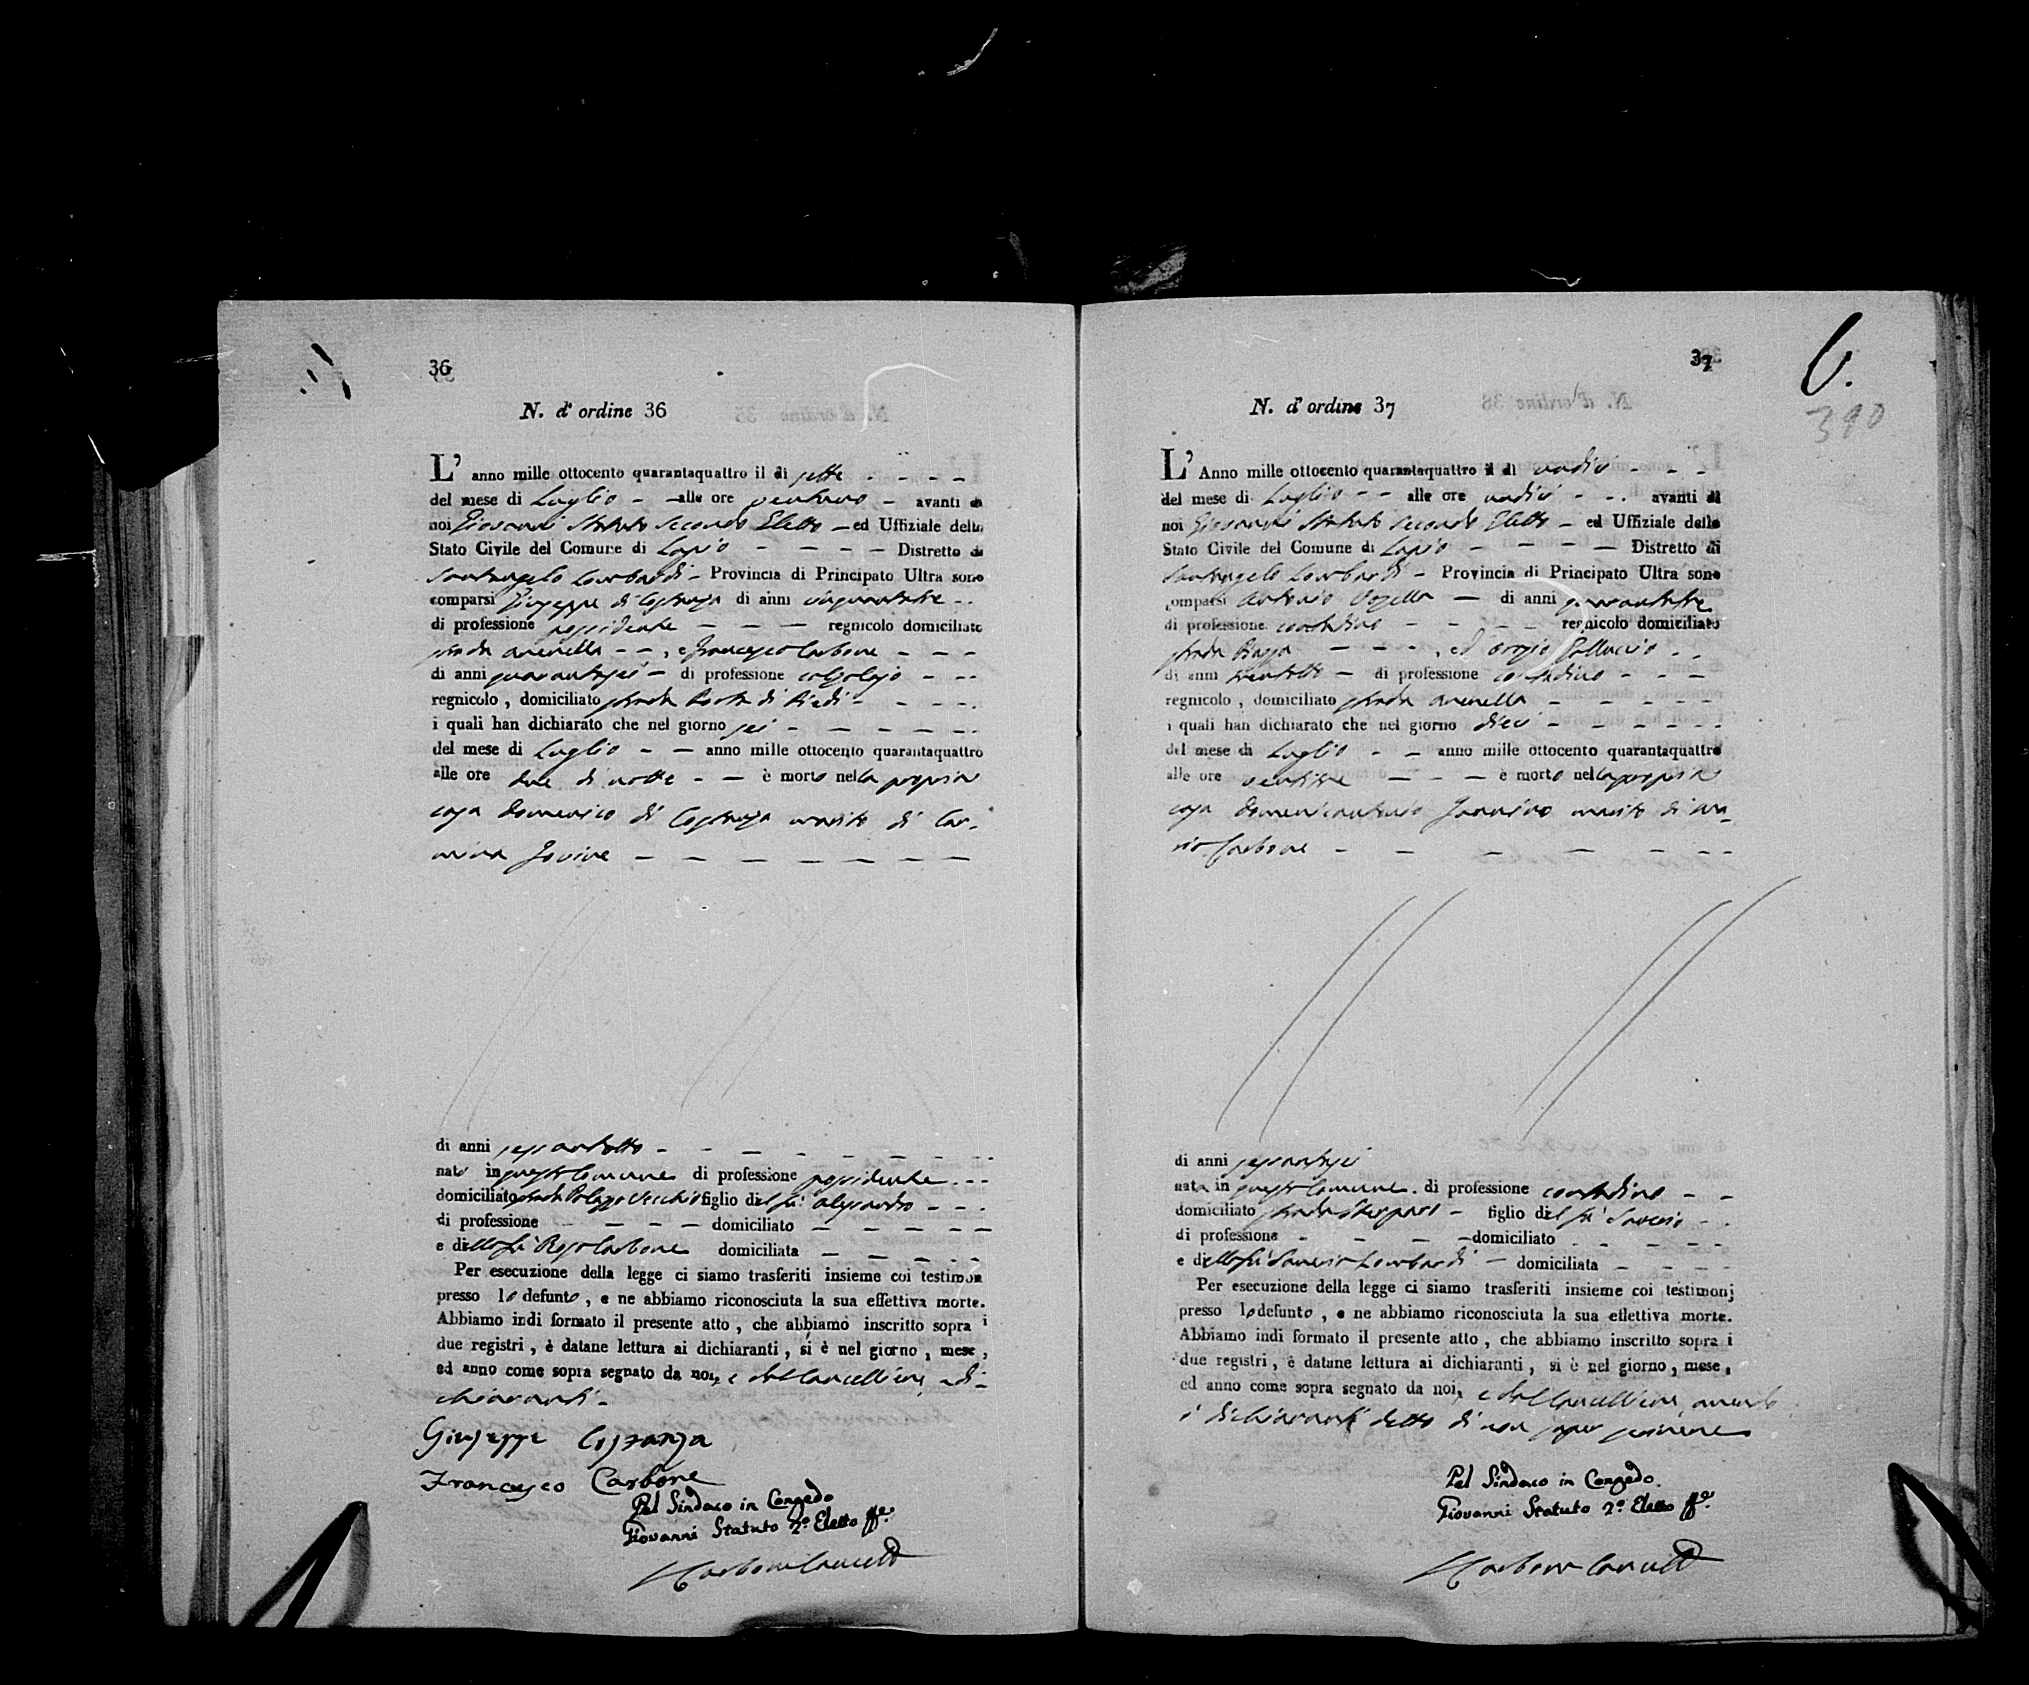 36
N. d'ordine 36
L' anno mille ottocento quarantaquattro il di sette
del mese di Luglio alle ore ventuno avanti di
noi Giovanni Statuto Secondo Eletto ed Uffiziale dello
Stato Civile del Comune di Lapio Distretto di
Santangelo Lombardi Provincia di Principato Ultra sono
comparsi Giuseppe di Costanza di anni cinquantatre
di professione possidente regnicolo domiciliato
strada arenella , e Francesco Carbone
di anni quarantasei di professione calzolajo
regnicolo , domiciliato strada Porta di Piedi
i quali han dichiarato che nel giorno sei
del mese di Luglio anno mille ottocento quarantaquattro
alle ore due di notte è morto nella propria
casa Domenico di Costanza marito di Car-
mina Iovine
di anni sessantotto
nato in questo Comune di professione possidente
domiciliato strada Palazzo Vecchio figlio del fu Alesandro
di professione domiciliato
e della fu Rosa Carbone domiciliata
Per esecuzione della legge ci siamo trasferiti insieme coi testimon
presso lo defunto , e ne abbiamo riconosciuta la sua effettiva morte.
Abbiamo indi formato il presente atto , che abbiamo inscritto sopra i
due registri , è datane lettura ai dichiaranti , si è nel giorno , mese ,
ed anno come sopra segnato da noi, e dal Cancelliere, e di-
chiaranti.
Giuseppe Costanza
Francesco Carbone
Pel Sindaco in Congedo
Giovanni Statuto 2º Eletto ff.e
Carbone Cancell
37
6.
390
N. d'ordine 37
L' Anno mille ottocento quarantaquattro il di undici
del mese di Luglio alle ore undici avanti di
noi Giovanni Statuto Secondo Eletto ed Uffiziale dello
Stato Civile del Comune di Lapio Distretto di
Santangelo Lombardi Provincia di Principato Ultra sono
comparsi Antonio di anni quarantatre
di professione contadino regnicolo domiciliato
strada , ed
di anni trentotto di professione contadino
regnicolo , domiciliato strada arenella
i quali han dichiarato che nel giorno dieci
del mese di Luglio anno mille ottocento quarantaquattro
alle ore ventitre è morto nella propria
casa Domenicantonio Iannino marito di Ma-
ria Carbone
di anni sessantasei
nato in questo Comune di professione contadino
domiciliato strada figlio del fu Saverio
di professione domiciliato
e della fu Lombardi domiciliata
Per esecuzione della legge ci siamo trasferiti insieme coi testimonj
presso lo defunto , e ne abbiamo riconosciuta la sua effettiva morte.
Abbiamo indi formato il presente atto , che abbiamo inscritto sopra i
due registri , è datane lettura ai dichiaranti , si è nel giorno , mese ,
ed anno come sopra segnato da noi, e dal Cancelliere, avendo
i dichiaranti detto di non saper scrivere
Pel Sindaco in Congedo
Giovanni Statuto 2º Eletto ff.e
Carbone Cancell